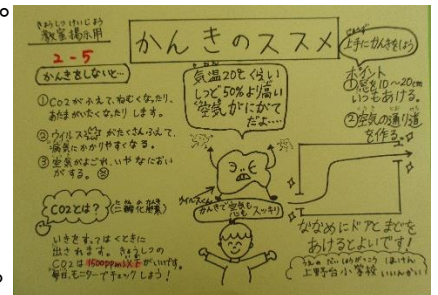 きょうしつ けいじよう
教室掲示用
2-5
かんきのススメ
かんきをしないと…
①CO2がふえて、ねむくなったり、
あたまがいたくなったりします。
②ウイルスがたくさんふえて、
病気にかかりやすくなる。
③空気がよごれ、いやなにおい
がする。
CO2とは?
(二酸化炭素)
いきをすってはくときに
出されます。きょうしつの
CO2は1500ppm以下がいいです。
毎日、モニターでチェックしよう!
気温20℃くらい
しつど50%より高い
空気がにがて
だよ…
ウイルスくん
かんきで空気も
心もスッキリ
上手にかんきをしよう
ポイント
①窓を10～20cm
いつもあける。
②空気の通り道
を作る。
ななめにドアとまどを
あけるとよいです!
うえのだいしょうがっこう ほけん
上野台小学校 いいんかい